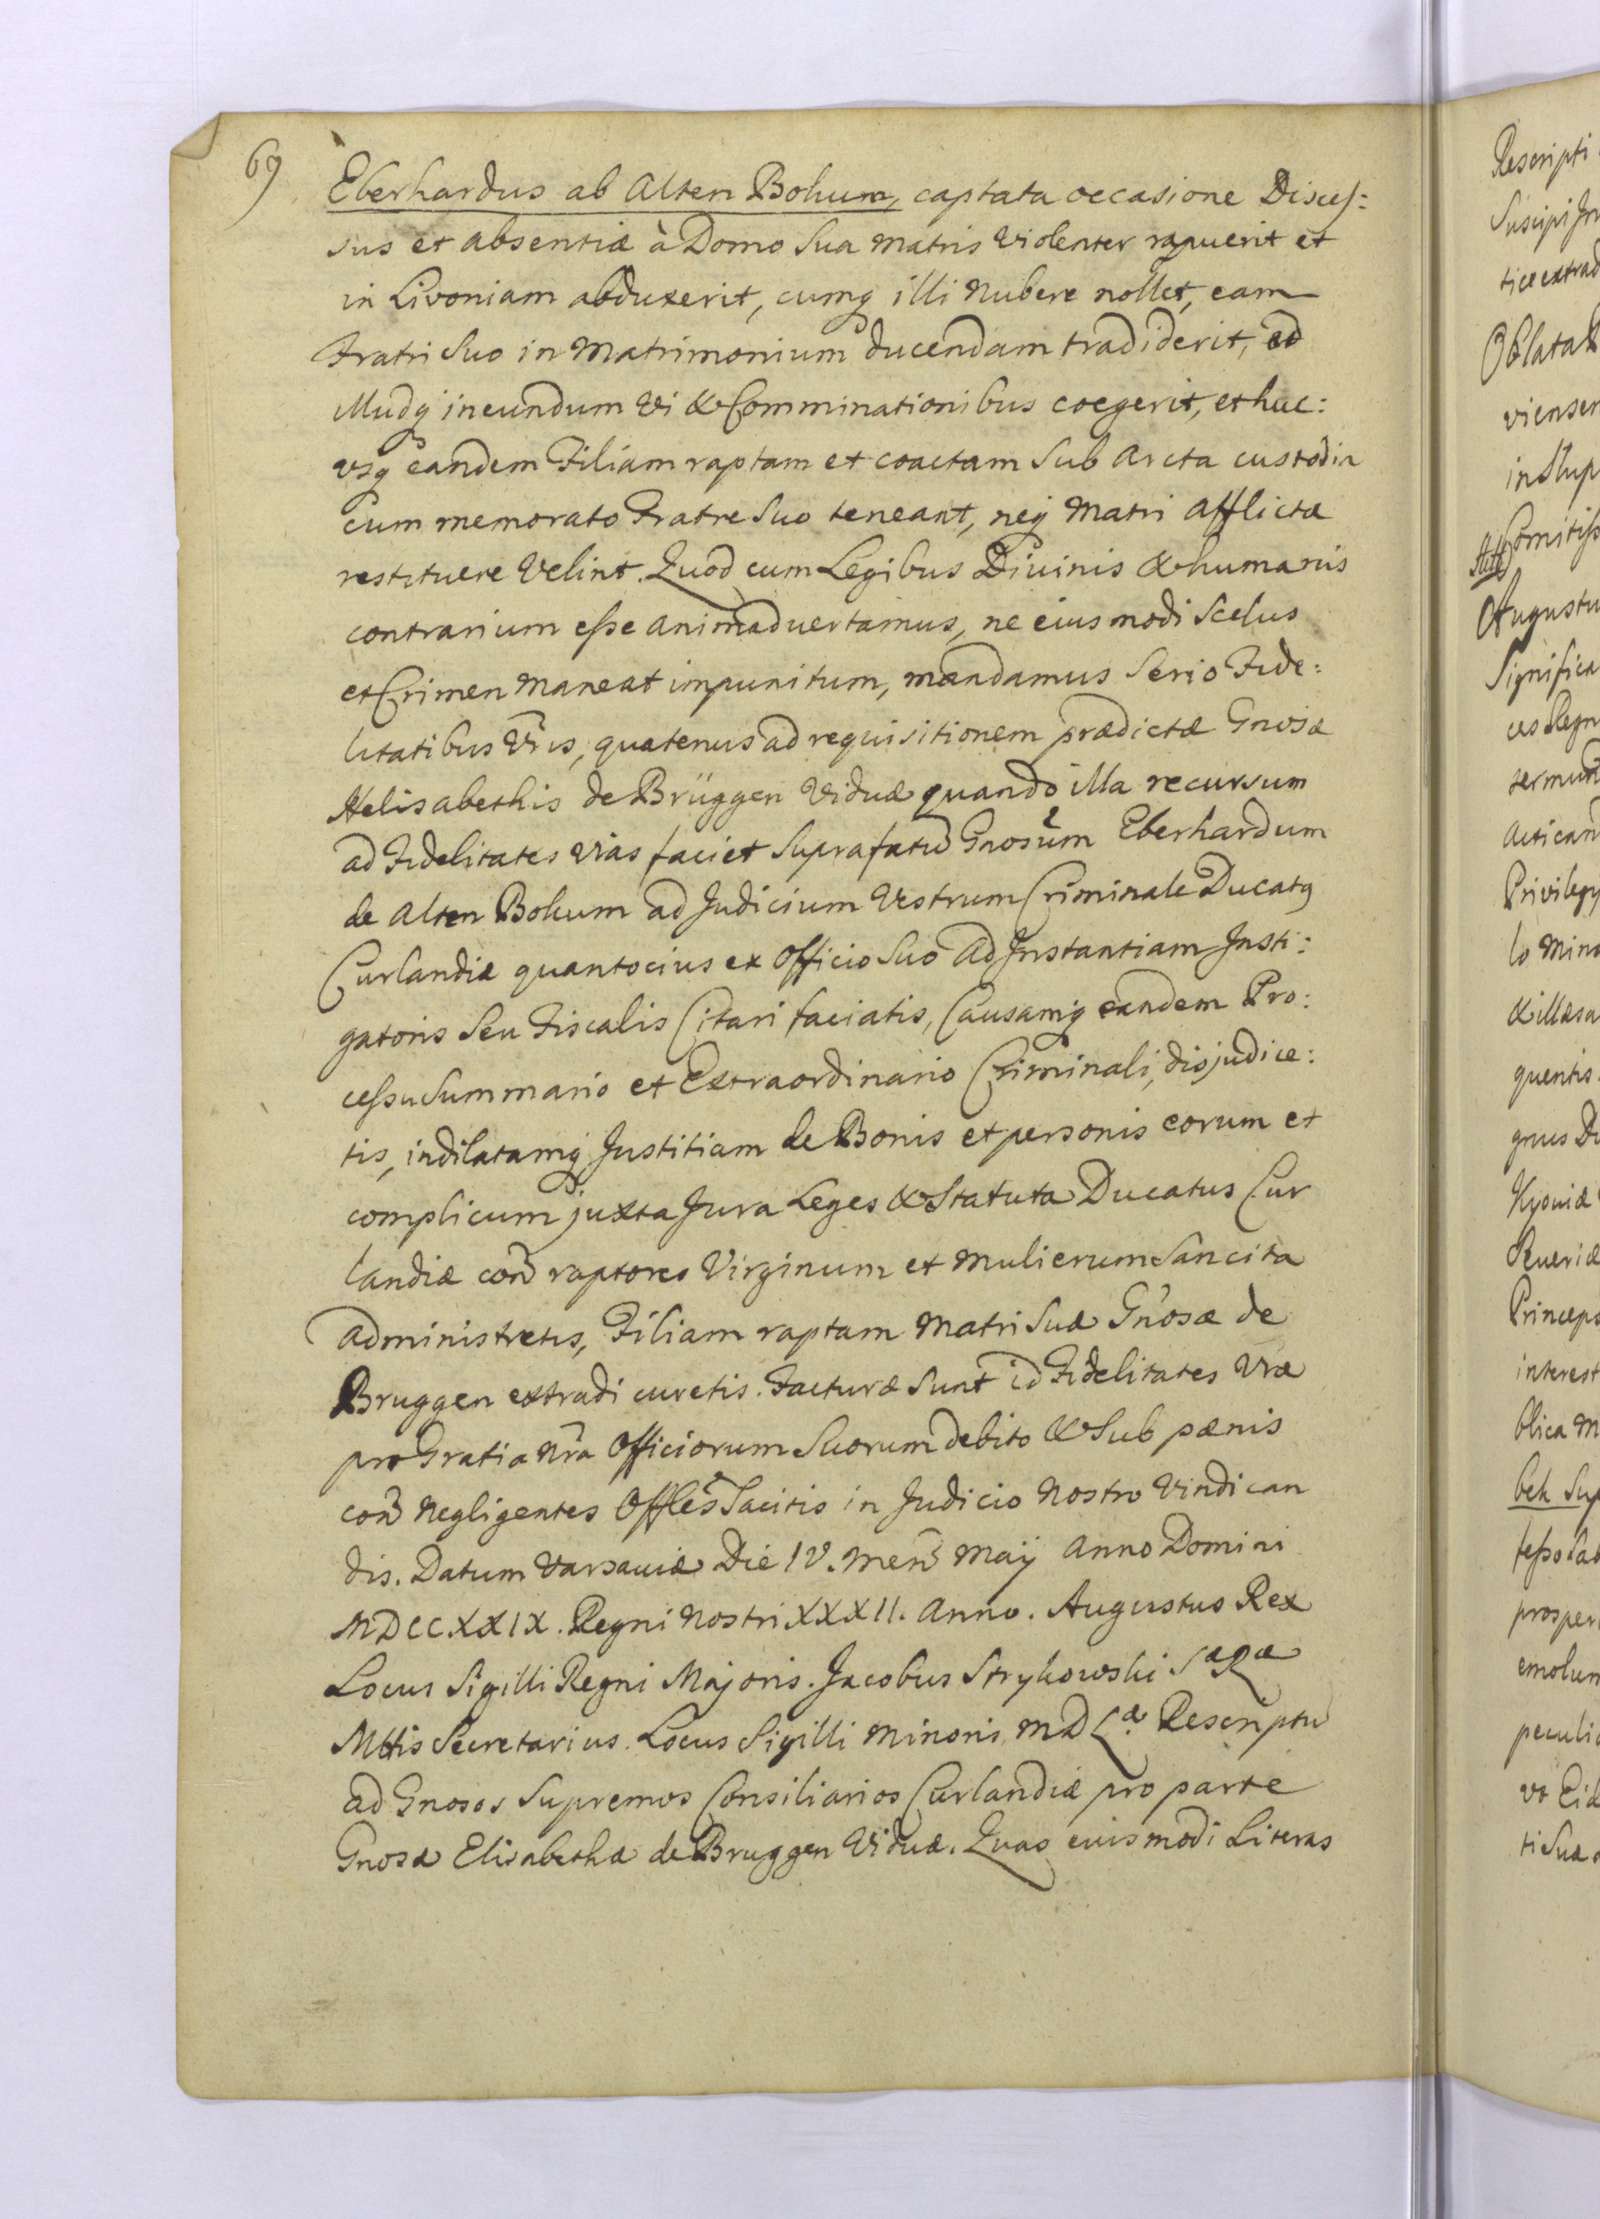 69
Eberhardus ab Alten Bohum, captata occasione Disces:
sus et absentiæ à Domo Sua Matris Violenter rapuerit et
in Livoniam abduxerit, cumq illi Nubere nollet, eam
Fratri Suo in Matrimonium ducendam tradiderit, ad
Illudq ineundum Vi & Comminationibus coegerit, et huc:
usq eandem Filiam raptam et coactam Sub Arcta custodia
cum memorato Fratre Suo teneant, neq Matri Afflictæ
restituere Velint. Quod cum Legibus Divinis & humanis
contrarium esse animadvertamus, ne eiusmodi Scelus
et Crimen Maneat impunitum, mandamus Serio Fide:
litatibus Vris, quatenus ad requisitionem prædictæ Gnosæ
Helisabethis de Brüggen Viduæ quando illa recursum
ad Fidelitates Vras faciet Suprafatū Gnosum Eberhardum
de Alten Bohum ad Judicium Vestrum Criminale Ducatq
Curlandiæ quantocius ex Officio Suo Ad Instantiam Insti:
gatoris Seu Fiscalis Citari faciatis, Causamq eandem Pro:
cessu Summario et Extraordinario Criminali, disjudice:
tis, indilatamq Justitiam de Bonis et personis eorum et
complicum juxta Jura Leges & Statuta Ducatus Cur
landiæ con̄ raptores Virginum et Mulierum Sancita
administretis, Filiam raptam Matri Suæ Gnosæ de
Bruggen extradi curetis. Facturæ Sunt id Fidelitates Vræ
pro Gratia Nrā Officiorum Suorum debito & Sub pænis
con̄ Negligentes Offles Sacitis in Judicio Nostro Vindican
dis. Datum Varsaviæ Die IV. Men̄ Maij Anno Domini
MDCC.XXIX. Regni Nostri XXXII. Anno. Augustus Rex
Locus Sigilli Regni Majoris. Jacobus Strykowski Sæ Ræ
Mttis Secretarius. Locus Sigilli Minoris M D Læ Rescriptū
ad Gnosos Supremos Consiliarios Curlandiæ pro parte
Gnosæ Elisabethæ de Bruggen Viduæ. Quas eiusmodi Literas
Rescripti
Oblata
Augustu
Significa
Privilegy
lo Mino
quentis
Kyoviæ
Princeps
interest
blica M